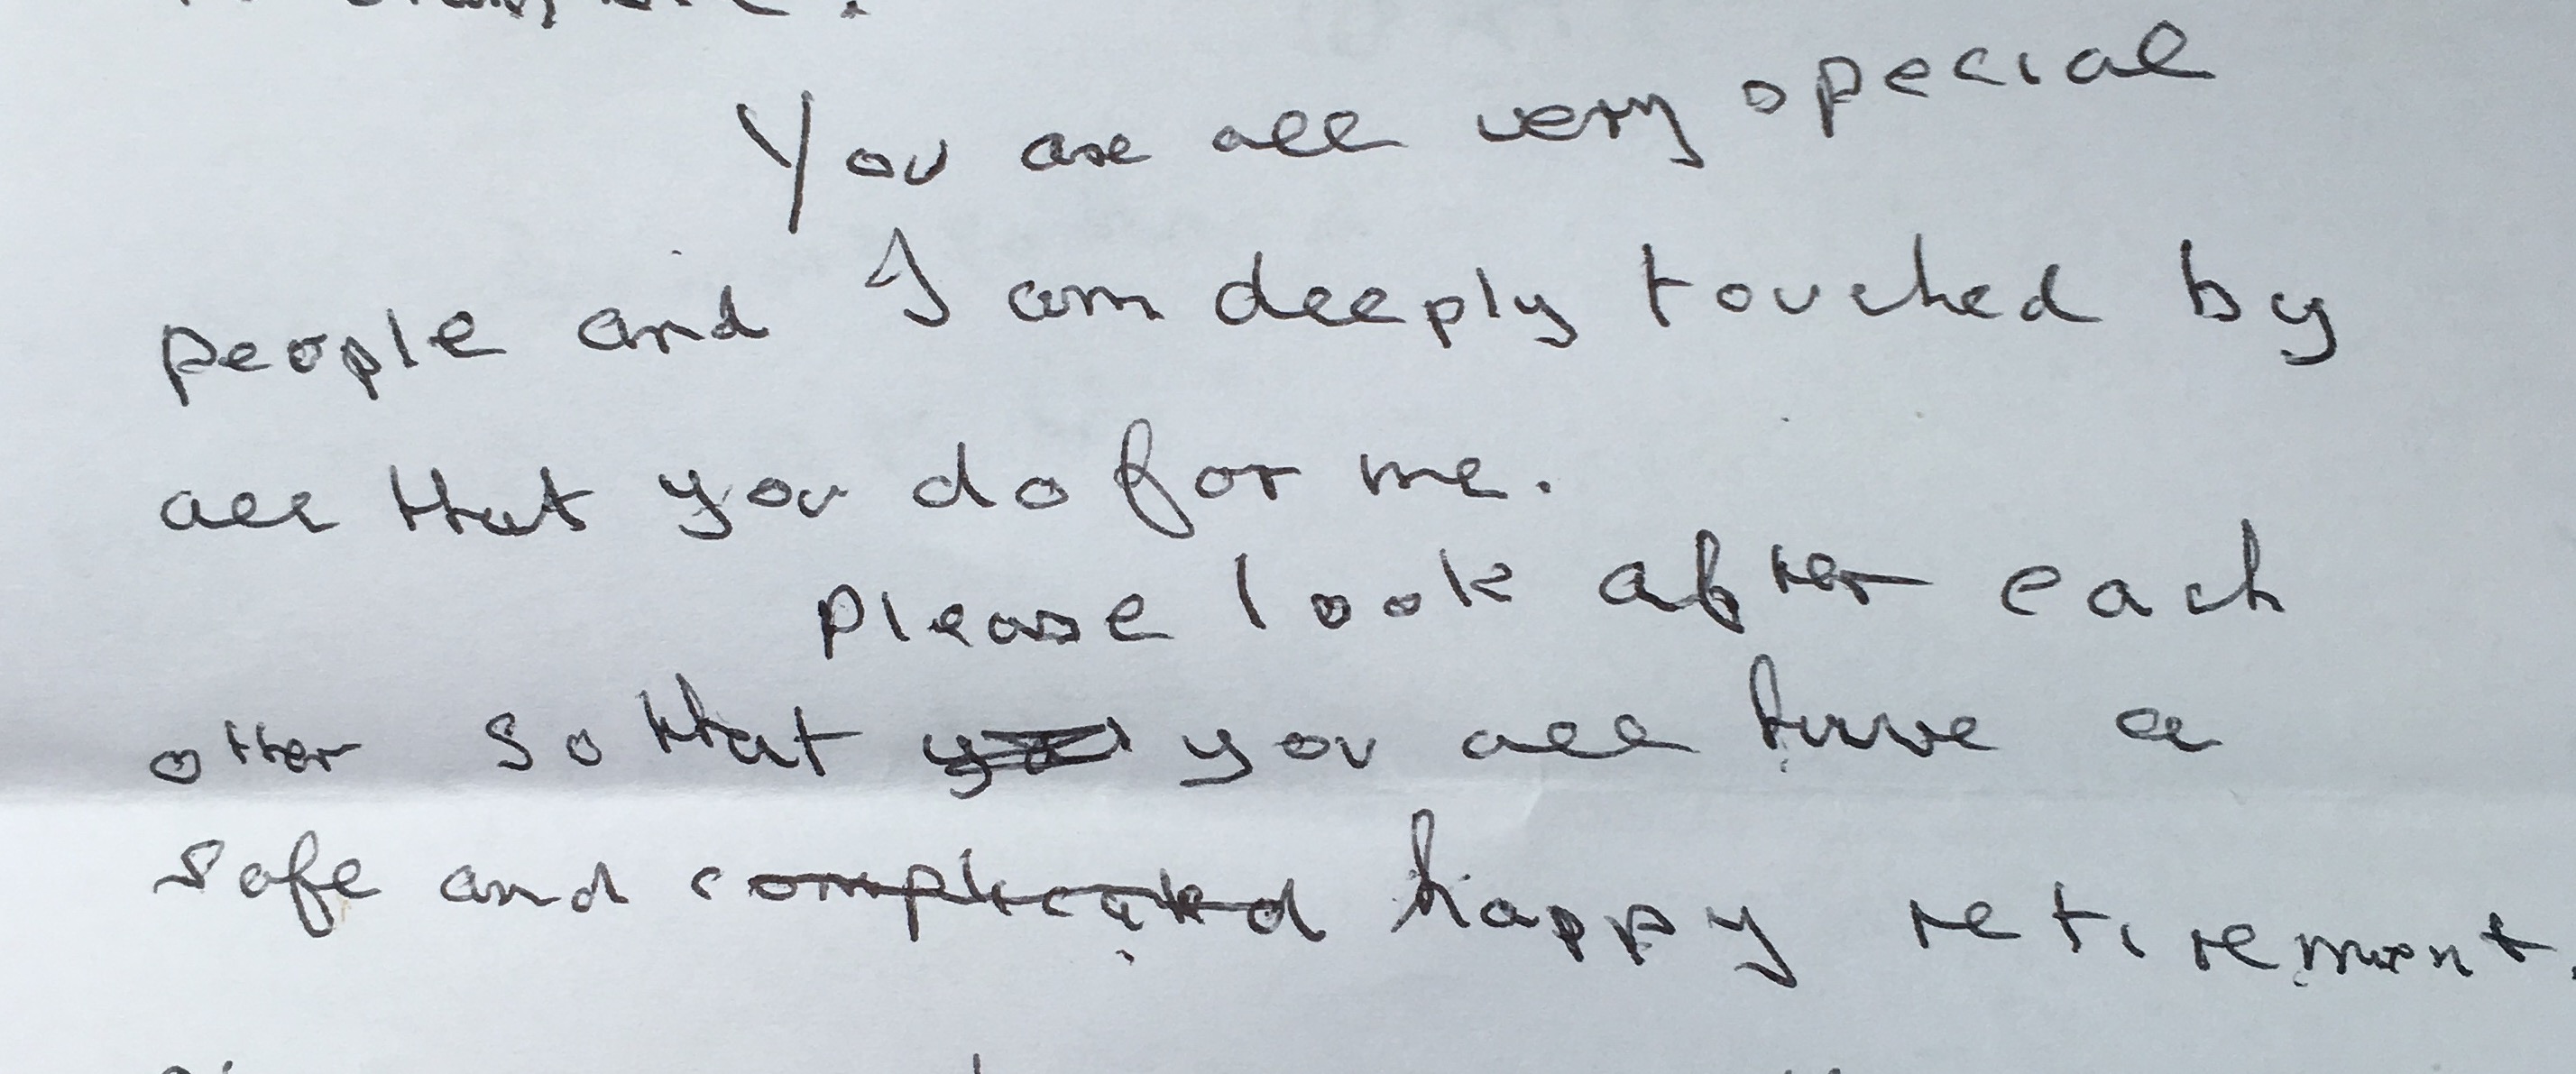 You are all very special
people and I am deeply touched by
all that you do for me.
Please look after each
other so that you all have a
safe and complicated happy retirement.